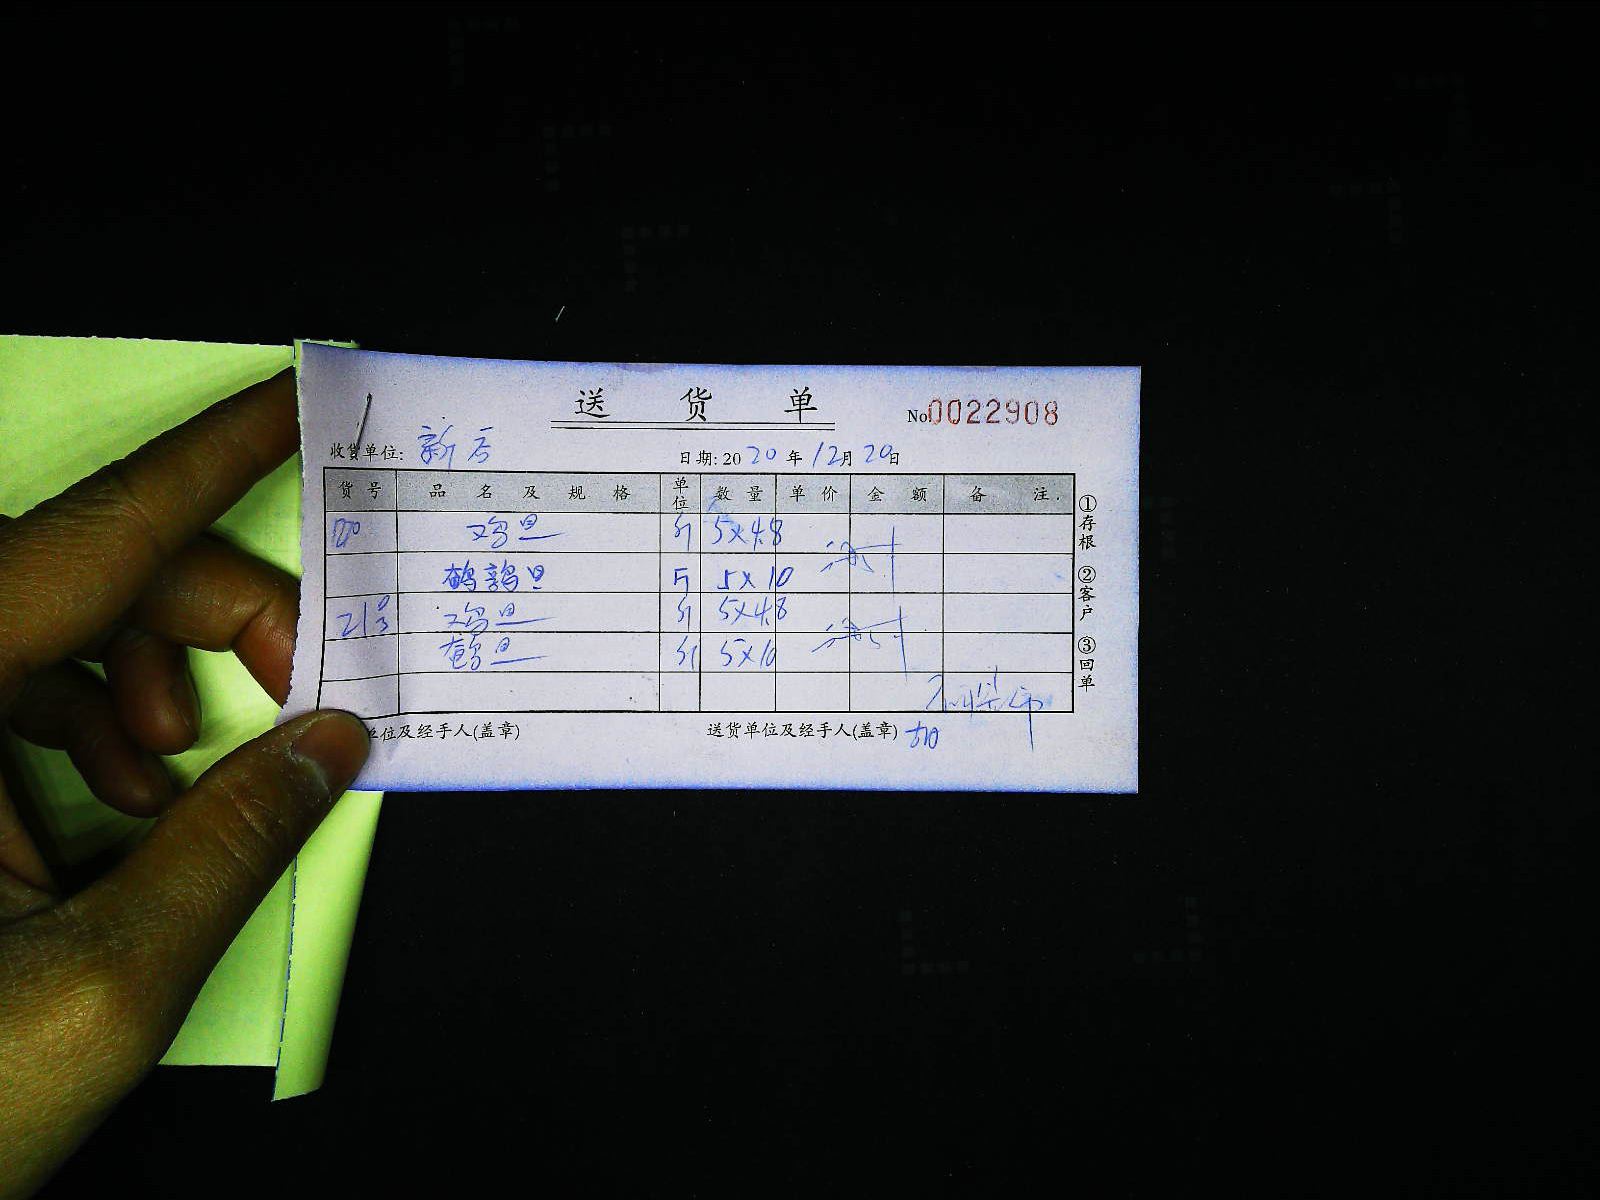 送 货 单
No.0022908
收货单位: 新店
日期: 2020年12月20日
货号 品名及规格 单位 数量 单价 金额 备注
鸡旦 斤 5×4.8
鹌鹑旦 斤 5×10
鸡旦 斤 5×4.8
旦 斤 5×10
位及经手人(盖章)
送货单位及经手人(盖章)
①存根 ②客户 ③回单